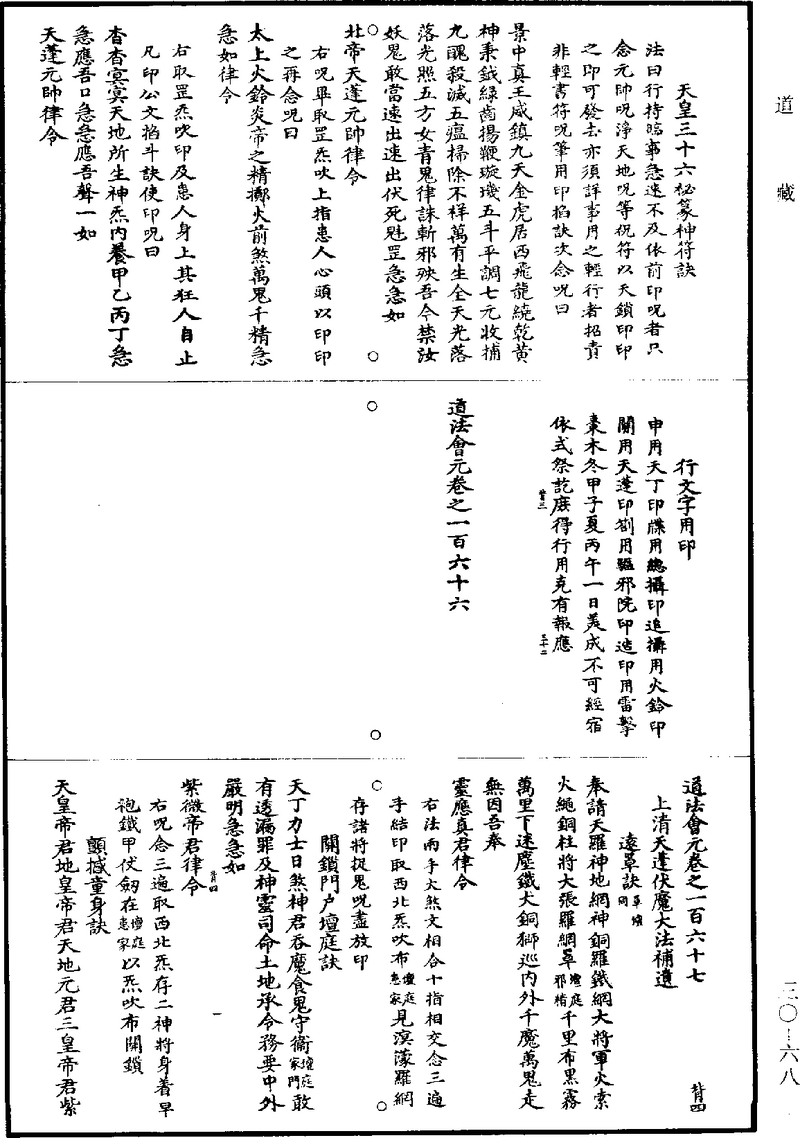 道藏
天皇三十六秘篆神符訣
法曰行持臨事急速不及依前印呪者只
念元帥呪淨天地呪等祝符以天鎖印印
之即可發去亦須詳事用之輕行者招責
非輕書符呪筆用印掐訣次念呪曰
景中真王威鎮九天金虎居西飛龍繞乾黃
神秉鉞綠齒揚鞭璇璣五斗平調七元收捕
九醜殺滅五瘟掃除不祥萬有生全天光落
落光照五方女青鬼律誅斬邪殃吾令禁汝
妖鬼敢當速出速出伏死魁罡急急如
北帝天蓬元帥律令
右呪畢取罡炁吹上指患人心頭以印印
之再念呪曰
太上火鈴炎帝之精擲火前煞萬鬼千精急
急如律令
右取罡炁吹印及患人身上其狂人自止
凡印公文掐斗訣使印呪曰
杳杳冥冥天地所生神炁內養甲乙丙丁急
急應吾口急急應吾聲一如
天蓬元帥律令
行文字用印
申用天丁印牒用總攝印追攝用火鈴印
關用天蓬印劄用驅邪院印造印用雷擊
棗木冬甲子夏丙午一日美成不可經宿
依式祭訖庶得行用克有報應
道法會元卷之一百六十六
道法會元卷之一百六十七
上清天蓬伏魔大法補遺
遠罩訣
奉請天羅神地網神銅羅鐵網大將軍火索
火繩銅柱將大張羅網罩壇庭邪精千里布黑霧
萬里下迷塵鐵犬銅獅巡內外千魔萬鬼走
無因吾奉
靈應真君律令
右法兩手火煞文相合十指相交念三遍
手結印取西北炁吹布壇庭患家見溟濛羅網
存諸將捉鬼呪畫放印
關鎖門戶壇庭訣
天丁力士日煞神君吞魔食鬼守衞壇庭家門敢
有透漏罪及神靈司命土地承令務要中外
嚴明急急如
紫微帝君律令
右呪念三遍取西北炁存二神將身着皁
袍鐵甲仗劒在壇庭患家以炁吹布關鎖
顫撼童身訣
天皇帝君地皇帝君天地元君三皇帝君紫
三〇-六八